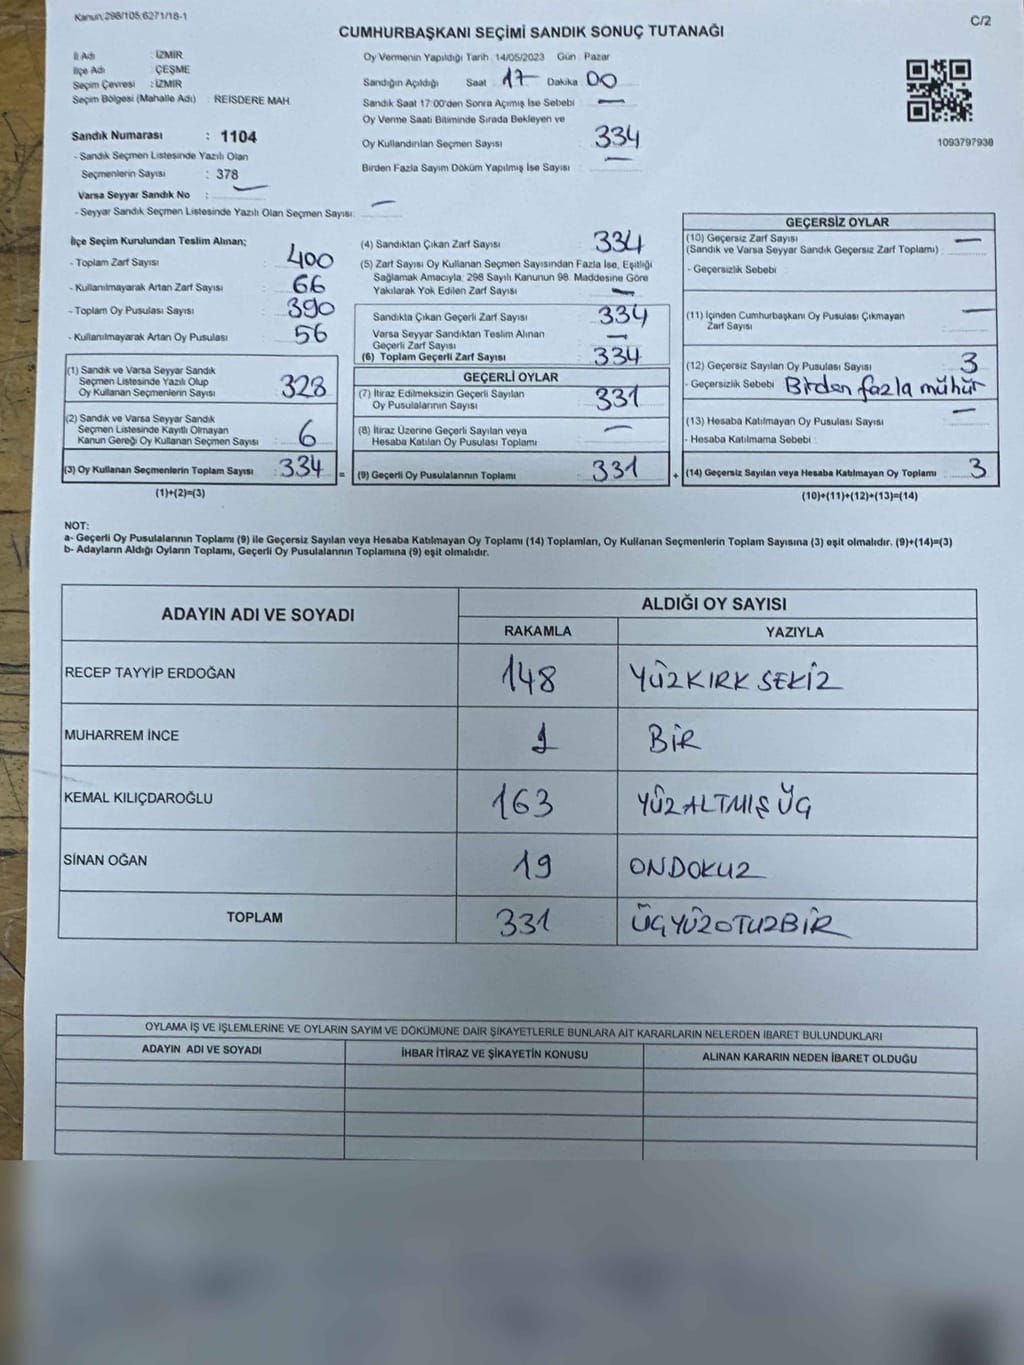 Kanun;298/105;6271/18-1
C/2
CUMHURBAŞKANI SEÇİMİ SANDIK SONUÇ TUTANAĞI
İl Adı : İZMİR
İlçe Adı : ÇEŞME
Seçim Çevresi : İZMİR
Seçim Bölgesi (Mahalle Adı) : REİSDERE MAH.
Sandık Numarası : 1104
- Sandık Seçmen Listesinde Yazılı Olan
Seçmenlerin Sayısı : 378
Varsa Seyyar Sandık No : —
- Seyyar Sandık Seçmen Listesinde Yazılı Olan Seçmen Sayısı: —
Oy Vermenin Yapıldığı Tarih 14/05/2023 Gün Pazar
Sandığın Açıldığı Saat 17 Dakika 00
Sandık Saat 17:00'den Sonra Açımış İse Sebebi —
Oy Verme Saati Bitiminde Sırada Bekleyen ve
Oy Kullandırılan Seçmen Sayısı : 334
Birden Fazla Sayım Döküm Yapılmış İse Sayısı : —
1093797938
İlçe Seçim Kurulundan Teslim Alınan;
- Toplam Zarf Sayısı : 400
- Kullanılmayarak Artan Zarf Sayısı : 66
- Toplam Oy Pusulası Sayısı : 390
- Kullanılmayarak Artan Oy Pusulası : 56
(1) Sandık ve Varsa Seyyar Sandık
Seçmen Listesinde Yazılı Olup
Oy Kullanan Seçmenlerin Sayısı : 328
(2) Sandık ve Varsa Seyyar Sandık
Seçmen Listesinde Kayıtlı Olmayan
Kanun Gereği Oy Kullanan Seçmen Sayısı : 6
(3) Oy Kullanan Seçmenlerin Toplam Sayısı : 334 =
(1)+(2)=(3)
(4) Sandıktan Çıkan Zarf Sayısı : 334
(5) Zarf Sayısı Oy Kullanan Seçmen Sayısından Fazla İse, Eşitliği
Sağlamak Amacıyla; 298 Sayılı Kanunun 98. Maddesine Göre
Yakılarak Yok Edilen Zarf Sayısı : —
Sandıkta Çıkan Geçerli Zarf Sayısı : 334
Varsa Seyyar Sandıktan Teslim Alınan
Geçerli Zarf Sayısı : —
(6) Toplam Geçerli Zarf Sayısı : 334
GEÇERLİ OYLAR
(7) İtiraz Edilmeksizin Geçerli Sayılan
Oy Pusulalarının Sayısı : 331
(8) İtiraz Üzerine Geçerli Sayılan veya
Hesaba Katılan Oy Pusulası Toplamı : —
(9) Geçerli Oy Pusulalarının Toplamı : 331 +
GEÇERSİZ OYLAR
(10) Geçersiz Zarf Sayısı : —
(Sandık ve Varsa Seyyar Sandık Geçersiz Zarf Toplamı)
- Geçersizlik Sebebi :
(11) İçinden Cumhurbaşkanı Oy Pusulası Çıkmayan
Zarf Sayısı : —
(12) Geçersiz Sayılan Oy Pusulası Sayısı : 3
- Geçersizlik Sebebi : Birden fazla mühür
(13) Hesaba Katılmayan Oy Pusulası Sayısı : —
- Hesaba Katılmama Sebebi :
(14) Geçersiz Sayılan veya Hesaba Katılmayan Oy Toplamı : 3
(10)+(11)+(12)+(13)=(14)
NOT:
a- Geçerli Oy Pusulalarının Toplamı (9) ile Geçersiz Sayılan veya Hesaba Katılmayan Oy Toplamı (14) Toplamları, Oy Kullanan Seçmenlerin Toplam Sayısına (3) eşit olmalıdır. (9)+(14)=(3)
b- Adayların Aldığı Oyların Toplamı, Geçerli Oy Pusulalarının Toplamına (9) eşit olmalıdır.
ADAYIN ADI VE SOYADI ALDIĞI OY SAYISI
RAKAMLA YAZIYLA
RECEP TAYYİP ERDOĞAN 148 YÜZKIRK SEKİZ
MUHARREM İNCE 1 BİR
KEMAL KILIÇDAROĞLU 163 YÜZALTMIŞ ÜÇ
SİNAN OĞAN 19 ONDOKUZ
TOPLAM 331 ÜÇYÜZOTUZBİR
OYLAMA İŞ VE İŞLEMLERİNE VE OYLARIN SAYIM VE DÖKÜMÜNE DAİR ŞİKAYETLERLE BUNLARA AİT KARARLARIN NELERDEN İBARET BULUNDUKLARI
ADAYIN ADI VE SOYADI İHBAR İTİRAZ VE ŞİKAYETİN KONUSU ALINAN KARARIN NEDEN İBARET OLDUĞU